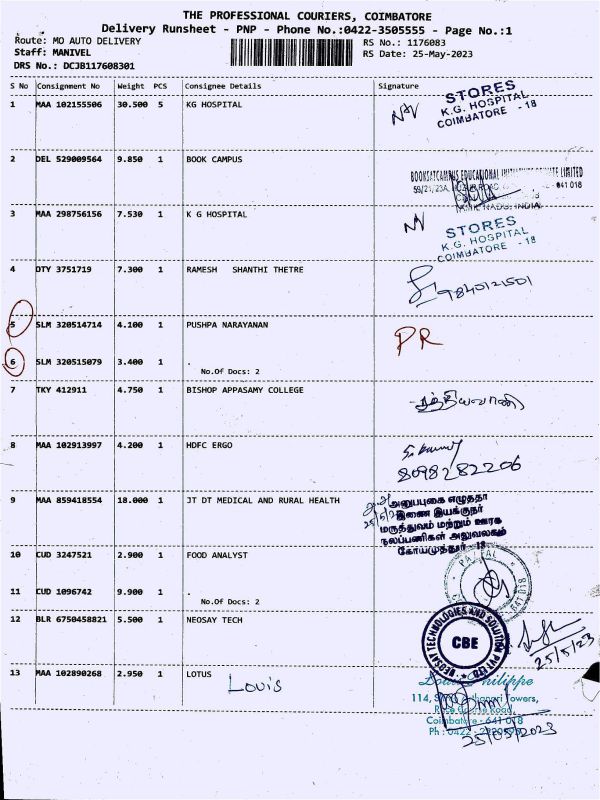 THE PROFESSIONAL COURIERS, COIMBATORE
Delivery Runsheet - PNP - Phone No.:0422-3505555 - Page No.:1
Route: MO AUTO DELIVERY
RS No.: 1176083
Staff: MANIVEL
RS Date: 25-May-2023
DRS No.: DCJB117608301
S No Consignment No Weight PCS Consignee Details Signature
1 MAA 102155506 30.500 5 KG HOSPITAL
STORES
K.G. HOSPITAL
COIMBATORE - 18
2 DEL 529009564 9.850 1 BOOK CAMPUS
59/21/23A, 641 018
3 MAA 298756156 7.530 1 K G HOSPITAL
STORES
K.G. HOSPITAL
COIMBATORE - 18
4 DTY 3751719 7.300 1 RAMESH SHANTHI THETRE
9840121501
5 SLM 320514714 4.100 1 PUSHPA NARAYANAN
PR
6 SLM 320515079 3.400 1 .
No.Of Docs: 2
7 TKY 412911 4.750 1 BISHOP APPASAMY COLLEGE
8 MAA 102913997 4.200 1 HDFC ERGO
8098282206
9 MAA 859418554 18.000 1 JT DT MEDICAL AND RURAL HEALTH
அனுப்புகை எழுத்தர்
இணை இயக்குநர்
மருத்துவம் மற்றும் ஊரக
நலப்பணிகள் அலுவலகம்
கோயமுத்தூர் 18
10 CUD 3247521 2.900 1 FOOD ANALYST
641 018
11 CUD 1096742 9.900 1 .
No.Of Docs: 2
12 BLR 6750458821 5.500 1 NEOSAY TECH
NEOSAY TECHNOLOGIES AND SOLUTION PVT LTD
CBE
25/5/23
13 MAA 102890268 2.950 1 LOTUS
LOUIS
Louis Philippe
114, Towers,
Road,
Coimbatore - 641 018
Ph : 0422
25/05/2023